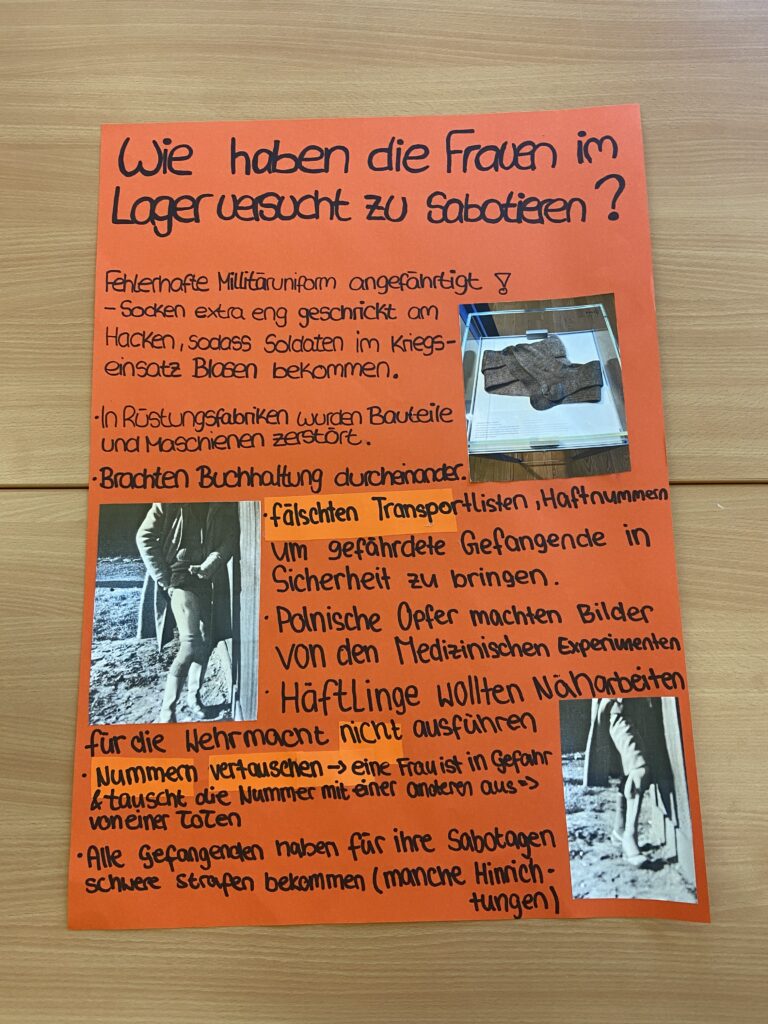 Wie haben die Frauen im
Lager versucht zu Sabotieren?
Fehlerhafte Millitäruniform angefährtigt !
- Socken extra eng geschrickt am
Hacken, sodass Soldaten im Kriegs-
einsatz Blasen bekommen.
· In Rüstungsfabriken wurden Bauteile
und Maschienen zerstört.
· Brachten Buchhaltung durcheinander.
· fälschten Transportlisten, Haftnummern
um gefährdete Gefangende in
Sicherheit zu bringen.
· Polnische Opfer machten Bilder
von den Medizinischen Experimenten
· Häftlinge wollten Näharbeiten
für die Wehrmacht nicht ausführen
· Nummern vertauschen → eine Frau ist in Gefahr
& tauscht die Nummer mit einer anderen aus =>
von einer Toten
· Alle Gefangenden haben für ihre Sabotagen
schwere Strafen bekommen (manche Hinrich-
tungen)